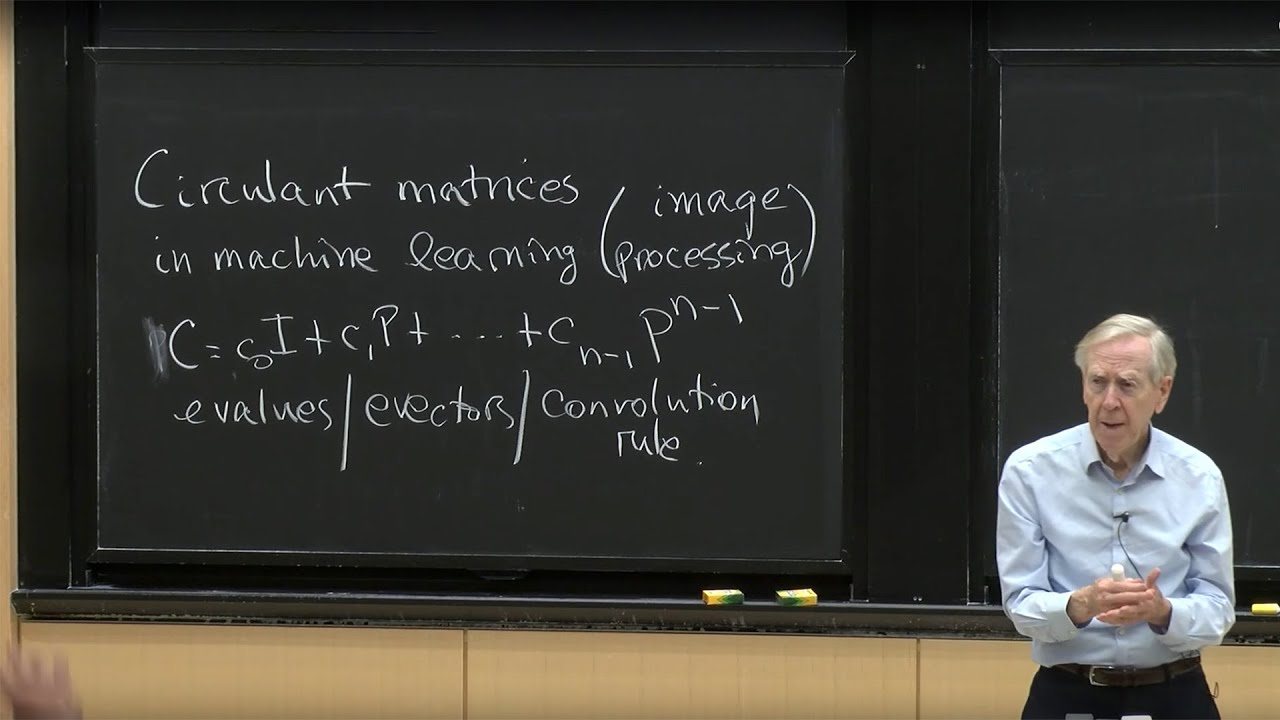 Circulant matrices
in machine learning (image processing)
C = c₀I + c₁P + ... + cₙ₋₁ Pⁿ⁻¹
evalues / evectors / convolution
rule.